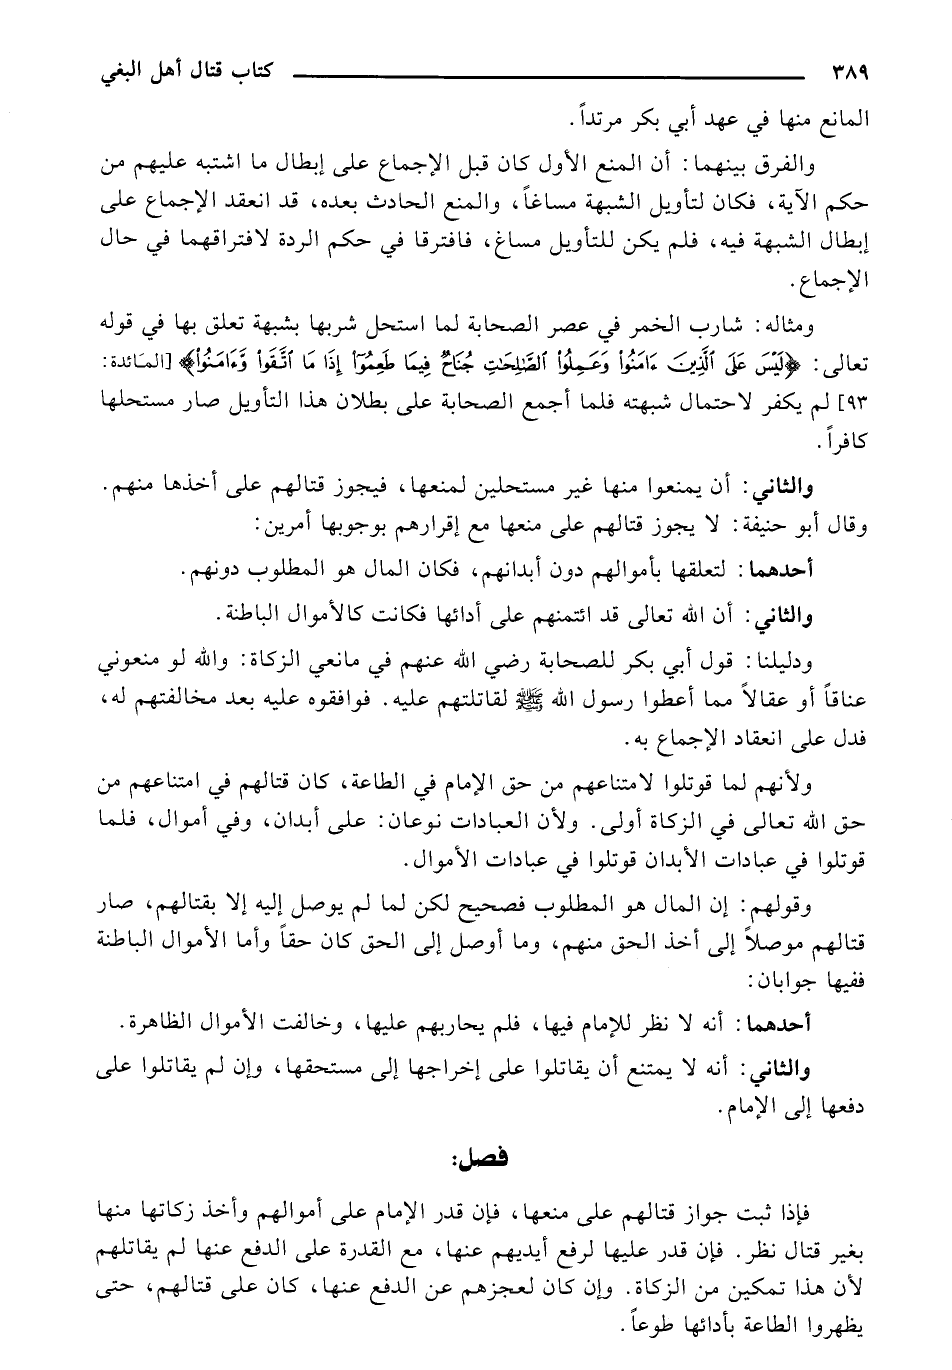 ٣٨٩ كتاب قتال أهل البغي
المانع منها في عهد أبي بكر مرتداً.
والفرق بينهما: أن المنع الأول كان قبل الإجماع على إبطال ما اشتبه عليهم من
حكم الآية، فكان لتأويل الشبهة مساغاً، والمنع الحادث بعده، قد انعقد الإجماع على
إبطال الشبهة فيه، فلم يكن للتأويل مساغ، فافترقا في حكم الردة لافتراقهما في حال
الإجماع.
ومثاله: شارب الخمر في عصر الصحابة لما استحل شربها بشبهة تعلق بها في قوله
تعالى: ﴿لَيْسَ عَلَى ٱلَّذِينَ ءَامَنُواْ وَعَمِلُواْ ٱلصَّٰلِحَٰتِ جُنَاحٌ فِيمَا طَعِمُوٓاْ إِذَا مَا ٱتَّقَواْ وَّءَامَنُواْ﴾ [المائدة:
٩٣] لم يكفر لاحتمال شبهته فلما أجمع الصحابة على بطلان هذا التأويل صار مستحلها
كافراً.
والثاني: أن يمنعوا منها غير مستحلين لمنعها، فيجوز قتالهم على أخذها منهم.
وقال أبو حنيفة: لا يجوز قتالهم على منعها مع إقرارهم بوجوبها أمرين:
أحدهما: لتعلقها بأموالهم دون أبدانهم، فكان المال هو المطلوب دونهم.
والثاني: أن الله تعالى قد ائتمنهم على أدائها فكانت كالأموال الباطنة.
ودليلنا: قول أبي بكر للصحابة رضي الله عنهم في مانعي الزكاة: والله لو منعوني
عناقاً أو عقالاً مما أعطوا رسول الله ﷺ لقاتلتهم عليه. فوافقوه عليه بعد مخالفتهم له،
فدل على انعقاد الإجماع به.
ولأنهم لما قوتلوا لامتناعهم من حق الإمام في الطاعة، كان قتالهم في امتناعهم من
حق الله تعالى في الزكاة أولى. ولأن العبادات نوعان: على أبدان، وفي أموال، فلما
قوتلوا في عبادات الأبدان قوتلوا في عبادات الأموال.
وقولهم: إن المال هو المطلوب فصحيح لكن لما لم يوصل إليه إلا بقتالهم، صار
قتالهم موصلاً إلى أخذ الحق منهم، وما أوصل إلى الحق كان حقاً وأما الأموال الباطنة
ففيها جوابان:
أحدهما: أنه لا نظر للإمام فيها، فلم يحاربهم عليها، وخالفت الأموال الظاهرة.
والثاني: أنه لا يمتنع أن يقاتلوا على إخراجها إلى مستحقها، وإن لم يقاتلوا على
دفعها إلى الإمام.
فصل:
فإذا ثبت جواز قتالهم على منعها، فإن قدر الإمام على أموالهم وأخذ زكاتها منها
بغير قتال نظر. فإن قدر عليها لرفع أيديهم عنها، مع القدرة على الدفع عنها لم يقاتلهم
لأن هذا تمكين من الزكاة. وإن كان لعجزهم عن الدفع عنها، كان على قتالهم، حتى
يظهروا الطاعة بأدائها طوعاً.